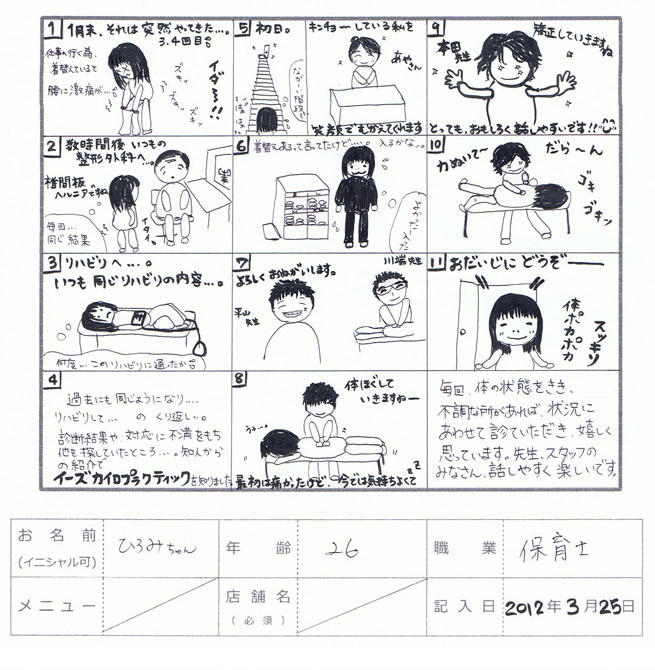 1
1月末、それは突然やってきた…。
3.4回目。
仕事へ行く為、
着替えていると
腰に激痛が…。
ズキッ
ズキッ
ズキッ
イダー!!
2
数時間後 いつもの
整形外科へ…。
椎間板
ヘルニアですね
毎回…
同じ結果
イタイ
3
リハビリへ…。
いつも同じリハビリの内容…。
何度…このリハビリに通ったか。
4
過去にも同じようになり…
リハビリして… の くり返し…。
診断結果や、対応に不満をもち
他を探していたところ…。知人から
の紹介で
イーズカイロプラクティックを知りました
5
初日。
ながーい階段
キンチョーしている私を
あやさん
笑顔でむかえてくれます
6
着替えあるって言ってたけど…。入るかな…。
よかった…入った
7
よろしくおねがいします。
平山
先生
川端先生
8
体ほぐして
いきますねー
うぅ…。
zz
最初は痛かったけど、今では気持ちよくて
9
本田
先生
矯正していきますね
とっても、おもしろく話しやすいです!!
10
力ぬいて〜
だら〜ん
ゴキ
ゴキッ
11
おだいじに どうぞー
体ポカポカ
スッキリ
毎回、体の状態をきき、
不調な所があれば、状況に
あわせて診ていただき、嬉しく
思っています。先生、スタッフの
みなさん、話しやすく楽しいです。
お名前
(イニシャル可)
ひろみちゃん
年齢
26
職業
保育士
メニュー
店舗名
(必須)
記入日
2012年3月25日